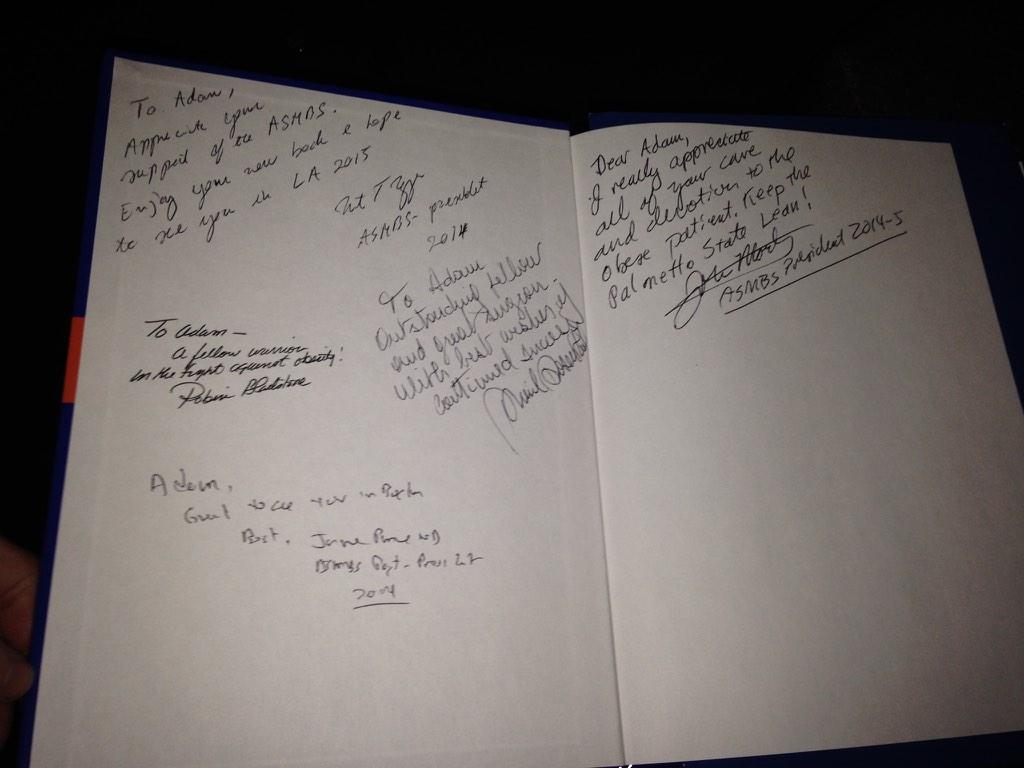 To Adam,
Appreciate your
support of the ASMBS.
Enjoy your new book & hope
to see you in LA 2015
ASMBS- president
2014
To Adam –
a fellow warrior
in the fight against obesity!
Robin Blackstone
To Adam
Outstanding fellow
and great surgeon.
With best wishes of
continued success
Adam,
Great to see you in
Best,
2004
Dear Adam,
I really appreciate
all of your care
and devotion to the
obese patient. Keep the
Palmetto State Lean!
ASMBS President 2014-5